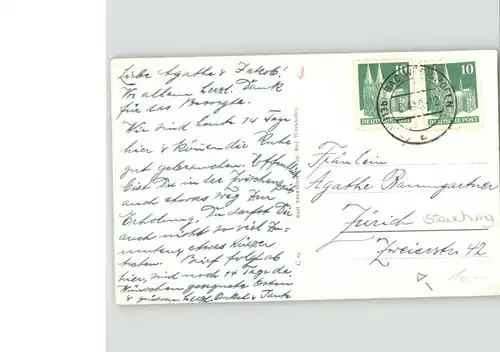 Liebe Agathe & Jakob!
Vor allem herzl. Dank
für das Besorgte.
Wir sind heute 14 Tage
hier & können die Ruhe
gut gebrauchen. Hoffentlich
bist Du in der Zwischenzeit
auch etwas weg zur
Erholung. Du darfst Dir
auch nicht so viel Zu-
muten, etwas kürzer
treten. Brief folgt ab
hier, sind noch 14 Tage da.
Wünschen gesegnete Ostern
& grüssen herzl. Onkel & Tante
10
DEUTSCHE POST
10
DEUTSCHE POST
Fräulein
Agathe Baumgartner
Zürich
Zweierstr. 42